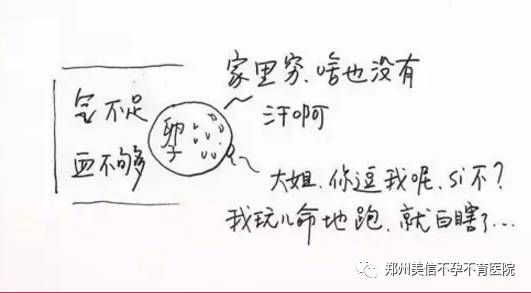 气不足
血不够
卵子
家里穷、啥也没有
汗啊
大姐、你逗我呢、si不?
我玩儿命地跑、就白瞎了...
郑州美信不孕不育医院